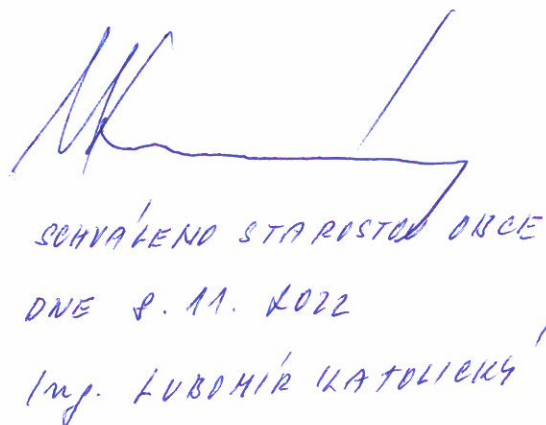 SCHVÁLENO STAROSTOU OBCE
DNE 8. 11. 2022
Ing. LUBOMÍR KATOLICKÝ